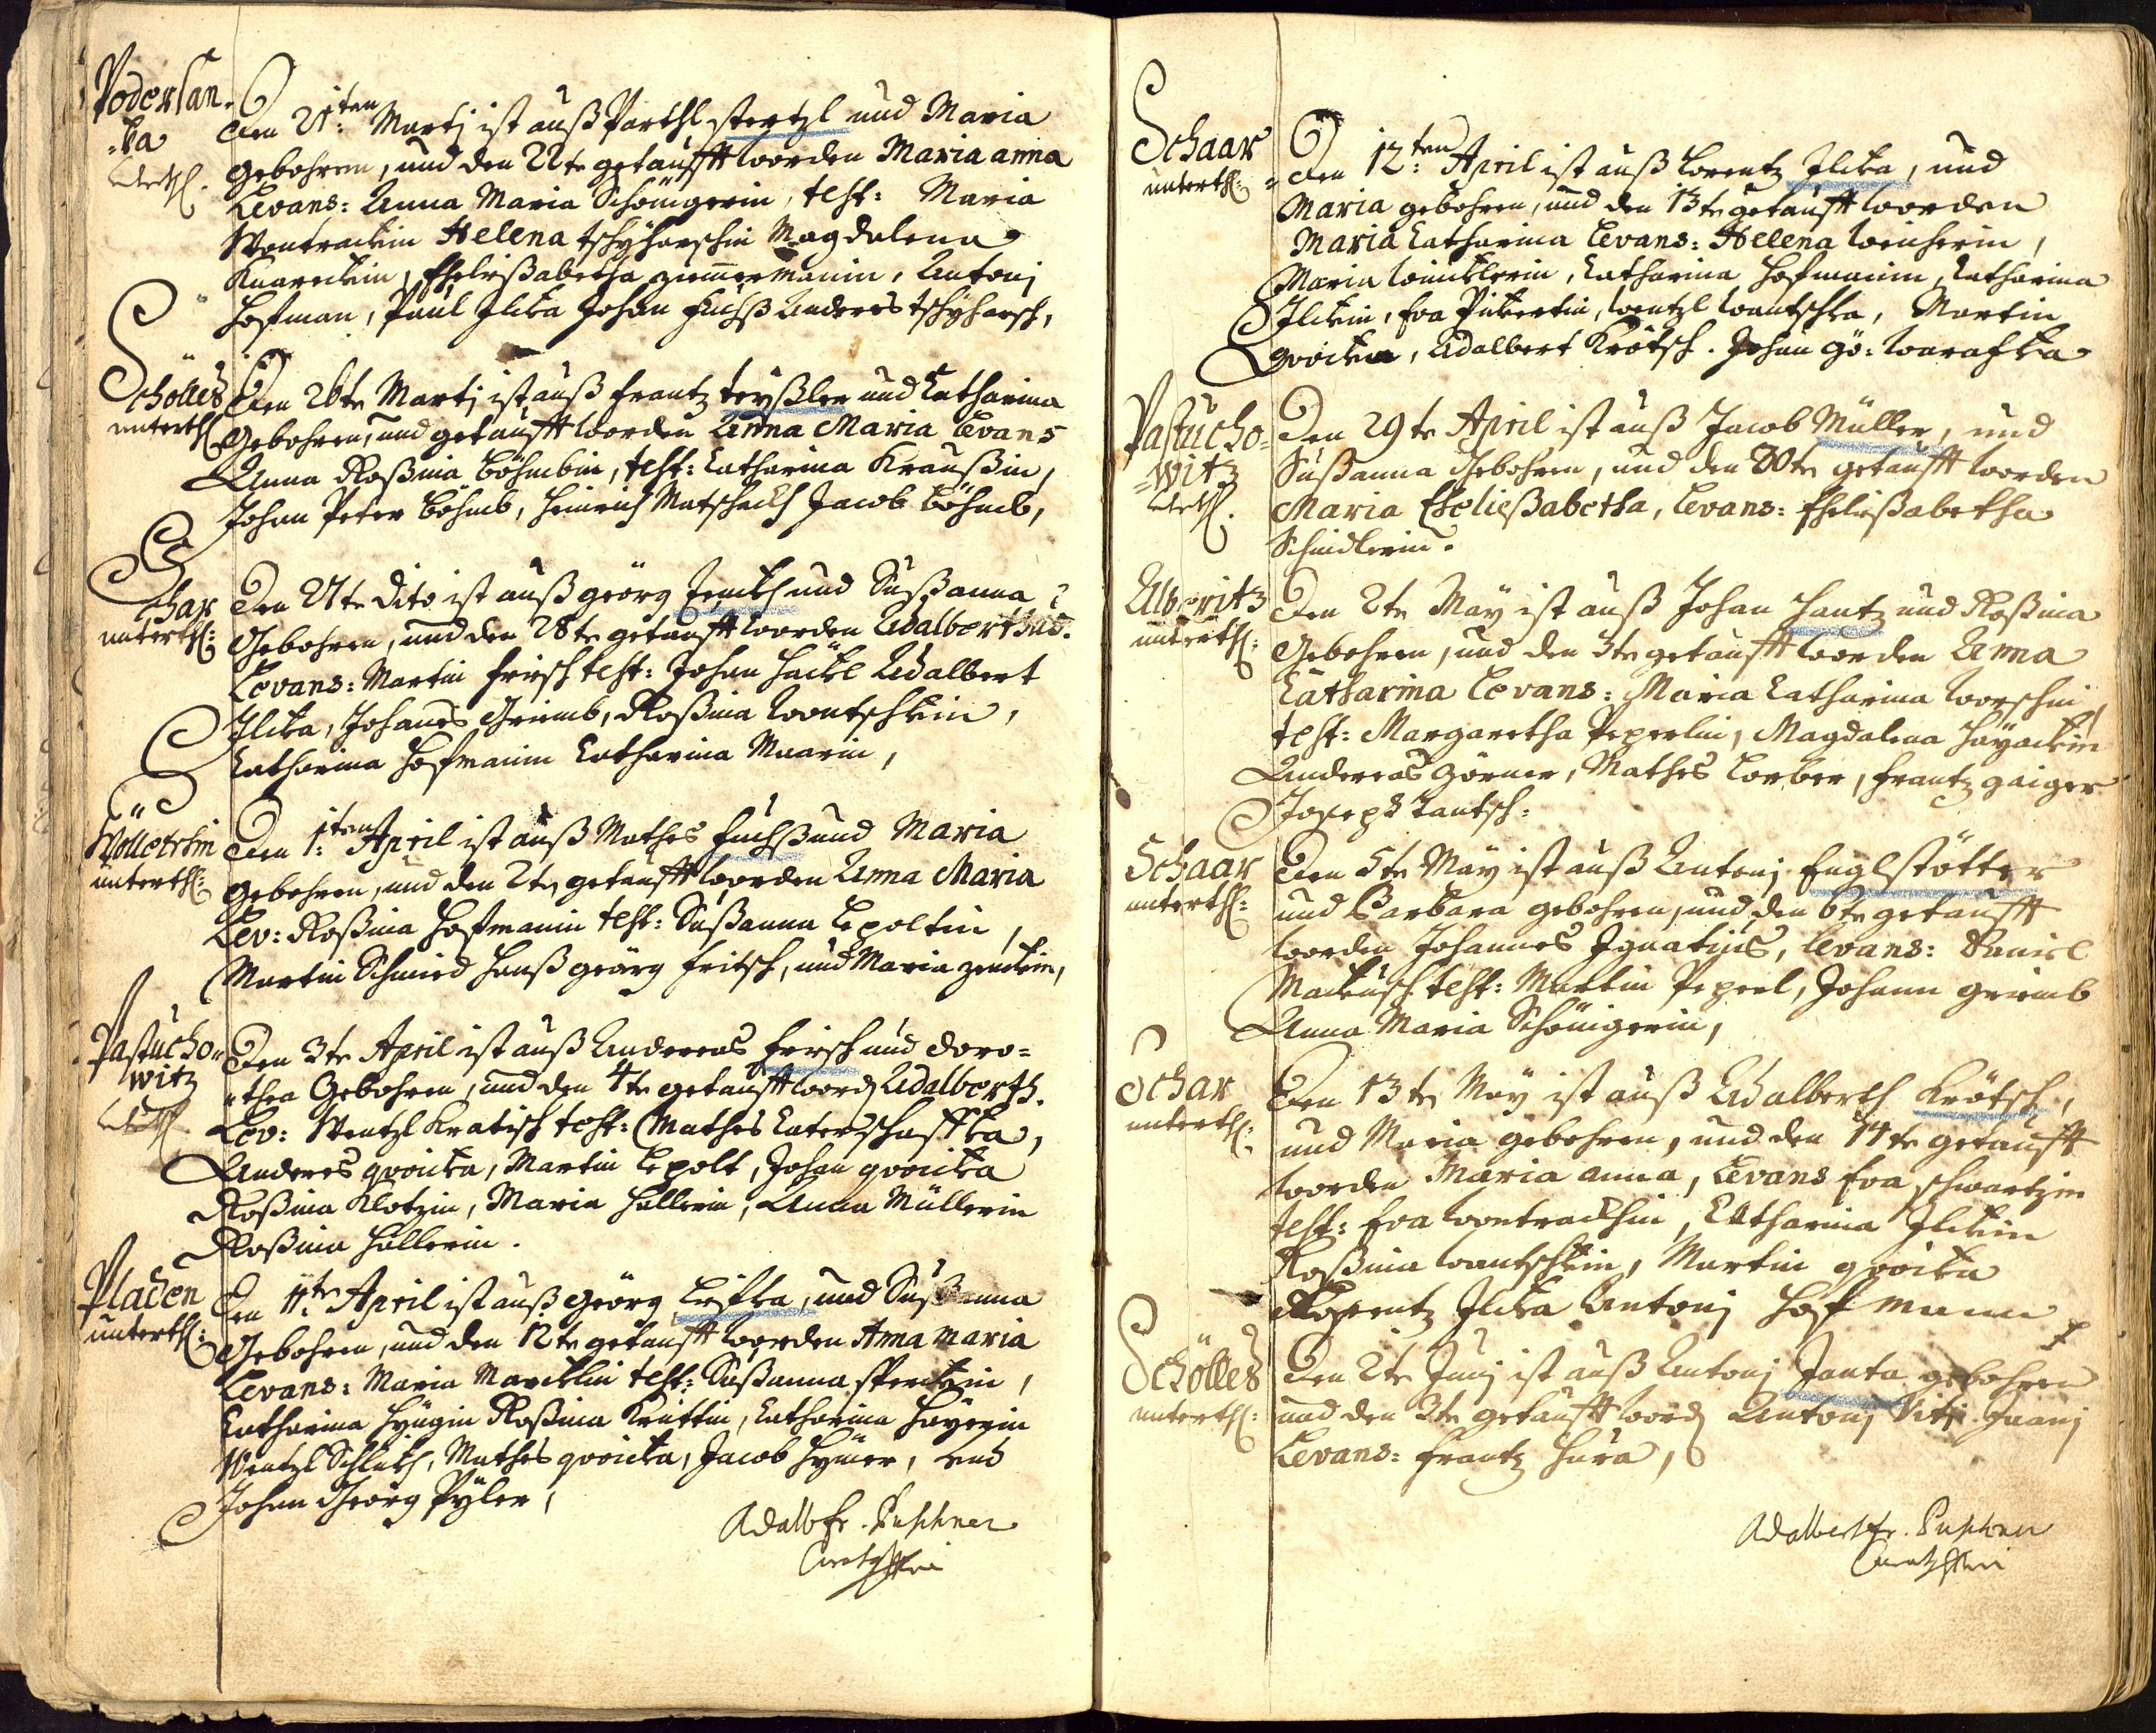 Podersan-
-ka
Den 21ten Martj ist auß Parthl stertzl und Maria
gebohren, und den 22te getaufft worden Maria anna
Levans: Anna Maria Schönigerin, test: Maria
Wontrackin Helena tschyharschin Magdalena
Knareckin, Eheließabetha zimmermanin, Antonj
Hofman, Paul Ilcka Johan Fuchß Anderes tschyharsch,
Schölles
unterth:
Den 26te Martj ist auß Frantz trexßler und Catharina
Gebohren, und getaufft worden Anna Maria Levans
Anna Roßina Böhmbin, test: Catharina Kraußin,
Johan Peter Böhmb, Heinrich Matschackh Jacob Böhmb,
Schar
unterth:
Den 27te dito ist auß georg Jenckh und Sußanna
Gebohren, und den 28te getaufft worden Adalberthus.
Levans: Martin Frisch test: Johan Hackl Adalbert
Ilcka, Johanes Griemb, Roßina Wontschkin,
Catharina Hofmanin Catharina Maarin,
Wölletschin
unterth:
Den 1ten April ist auß Mathes Fuchß und Maria
gebohren, und den 2te getaufft worden Anna Maria
Lev: Roßina Hofmanin test: Sußanna Lepoltin,
Martin Schmied Hanß georg Fritsch, und Maria zenckin,
Pastucho-
witz
Den 3te April ist auß Andereas Frisch und Doro-
-thea Gebohren, und den 4te getaufft word Adalberth.
Lev: Wentzl Kratisch test: Mathes Laterschaffka,
Anderes qvoicka, Martin Lepolt, Johan qvoicka
Roßina Klotzin, Maria Hallerin, Anna Müllerin
Roßina Hallerin.
Pladen
unterth:
Den 11te April ist auß georg Liska, und Sußanna
Gebohren, und den 12te getaufft worden Anna Maria
Levans: Maria Marcklin test: Sußanna sperckin,
Catharina Hyngin Roßina Knittin, Catharina Hayerin
Wentzl Schlakh, Mathes qvoicka, Jacob Hyner, und
Johan Georg Pyler,
Adalb fr. Puschner
Schaar
unterth:
Den 12ten April ist auß Lorentz Ilcka, und
Maria gebohren, und den 13te getaufft worden
Maria Catharina Levans: Helena Weinherin,
Maria Wincklerin, Catharina Hofmanin, Catharina
Ilckin, Eva Pinkertin, Wentzl Wantschka, Martin
qvoicka, Adalbert Krötsch. Johan gö: Warafka
Pastucho-
-witz
Den 29te April ist auß Jacob Müller, und
Sußanna Gebohren, und den 30te getaufft worden
Maria Eheließabetha, Levans: Eheließabetha
Schindlerin.
Alberitz
unterth:
Den 2te Maÿ ist auß Johan Hantz und Roßina
Gebohren, und den 3te getaufft worden Anna
Catharina Levans: Maria Catharina Worschin
test: Margaretha Peperlin, Magdalena Hayackin
Andereas Görner, Mathes Lorber, Frantz gaiger
Joseph Tantsch:
Schaar
unterth:
Den 5te Maÿ ist auß Antonj Englstötter
und Barbara gebohren, und den 6te getaufft
worden Johannes Ignatius, Levans: Daniel
Mackusch test: Martin Peperl, Johann Griemb
Anna Maria Schönigerin,
Schar
unterth:
Den 13te Maÿ ist auß Adalberth Krötsch,
und Maria gebohren, und den 14te getaufft
worden Maria anna, Levans Eva schwartzin
test: Eva Wontrackhin, Catharina Ilckin
Roßina Wantschkin, Martin qvoicka
Lorentz Ilcka Antonj Hofmann
Schölles
unterth:
Den 2te Junj ist auß Antonj Janta gebohren
und den 3te getaufft word Antonj Vitj
Levans: Frantz Hura,
Adalbert fr. Puschner